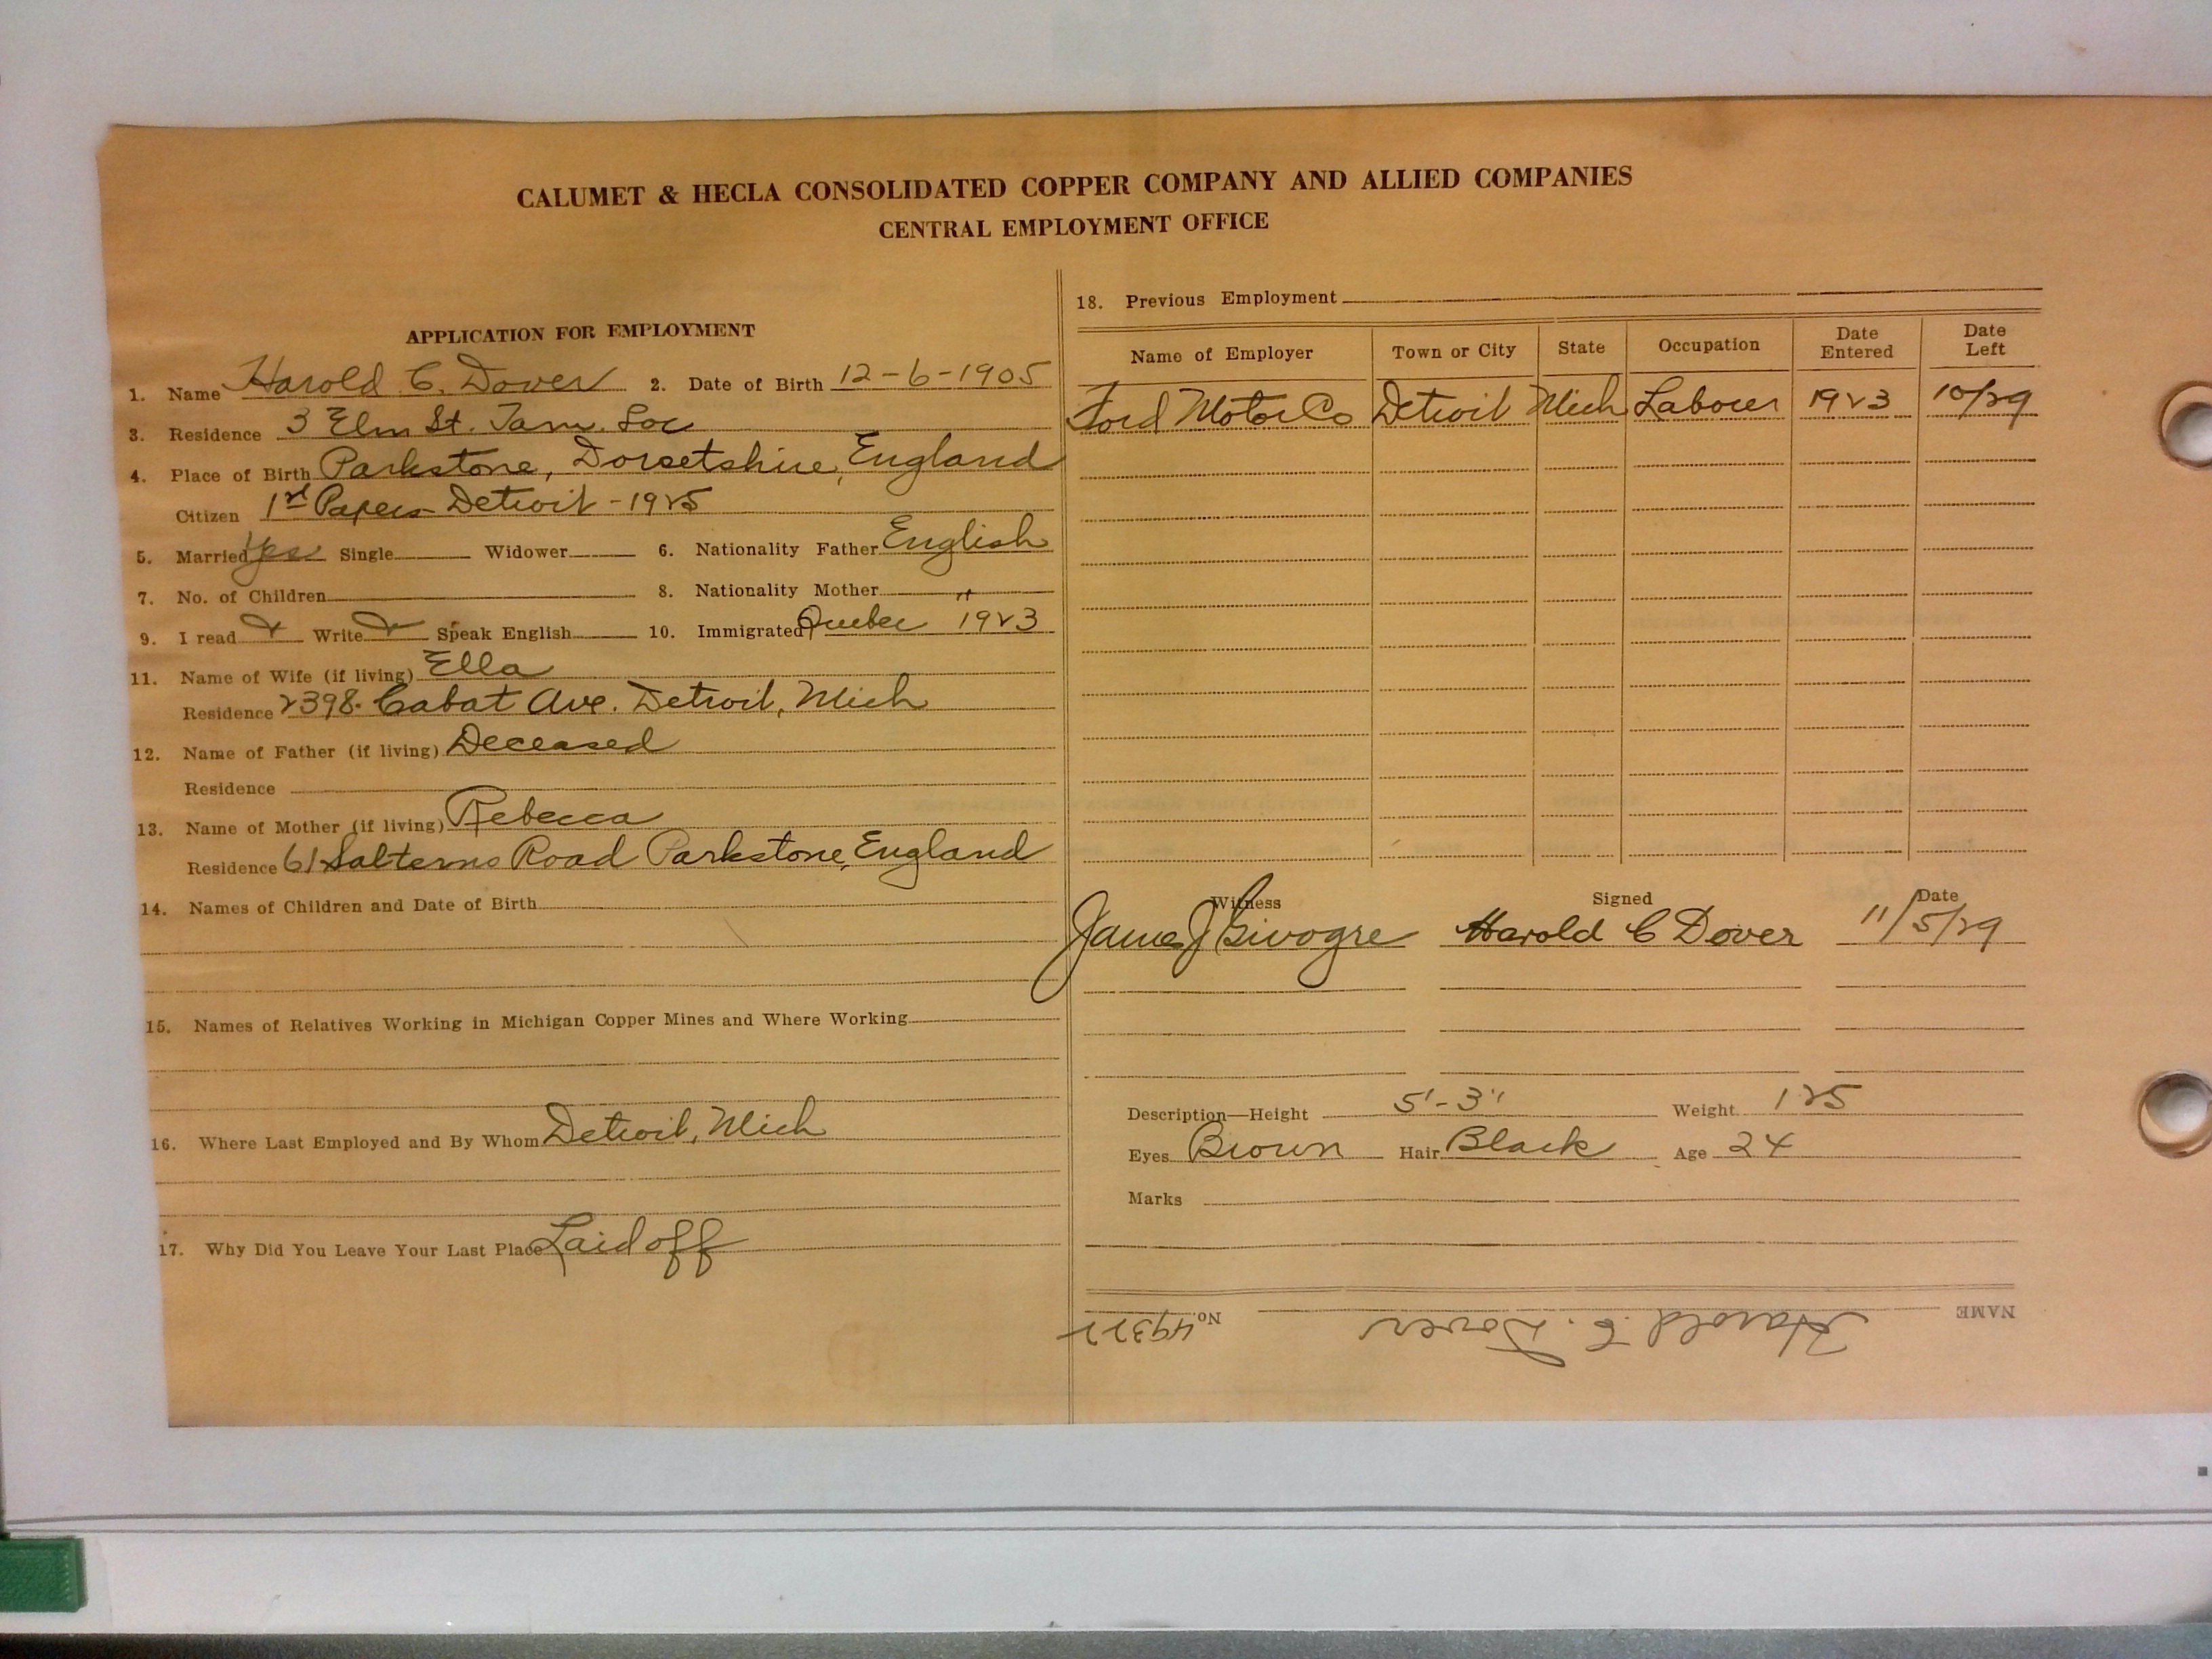 CALUMET & HECLA CONSOLIDATED COPPER COMPANY AND ALLIED COMPANIES
CENTRAL EMPLOYMENT OFFICE
APPLICATION FOR EMPLOYMENT
1. Name Harold C. Dover 2. Date of Birth 12-6-1905
3. Residence 3 Elm St. Tam. Loc
4. Place of Birth Parkstone, Dorsetshire, England
Citizen 1st Papers Detroit - 1925
5. Married Yes Single Widower 6. Nationality Father English
7. No. of Children 8. Nationality Mother "
9. I read Write Speak English 10. Immigrated Quebec 1923
11. Name of Wife (if living) Ella
Residence 2398 Cabat Ave. Detroit, Mich
12. Name of Father (if living) Deceased
Residence
13. Name of Mother (if living) Rebecca
Residence 61 Salterns Road Parkstone, England
14. Names of Children and Date of Birth
15. Names of Relatives Working in Michigan Copper Mines and Where Working
16. Where Last Employed and By Whom Detroit, Mich
17. Why Did You Leave Your Last Place Laid off
18. Previous Employment
Name of Employer Town or City State Occupation Date Entered Date Left
Ford Motor Co Detroit Mich Laborer 1923 10/29
Witness Signed Date
James J Harold C Dover 11/5/29
Description—Height 5'-3" Weight 125
Eyes Brown Hair Black Age 24
Marks
NAME Harold C. Dover No. 49322